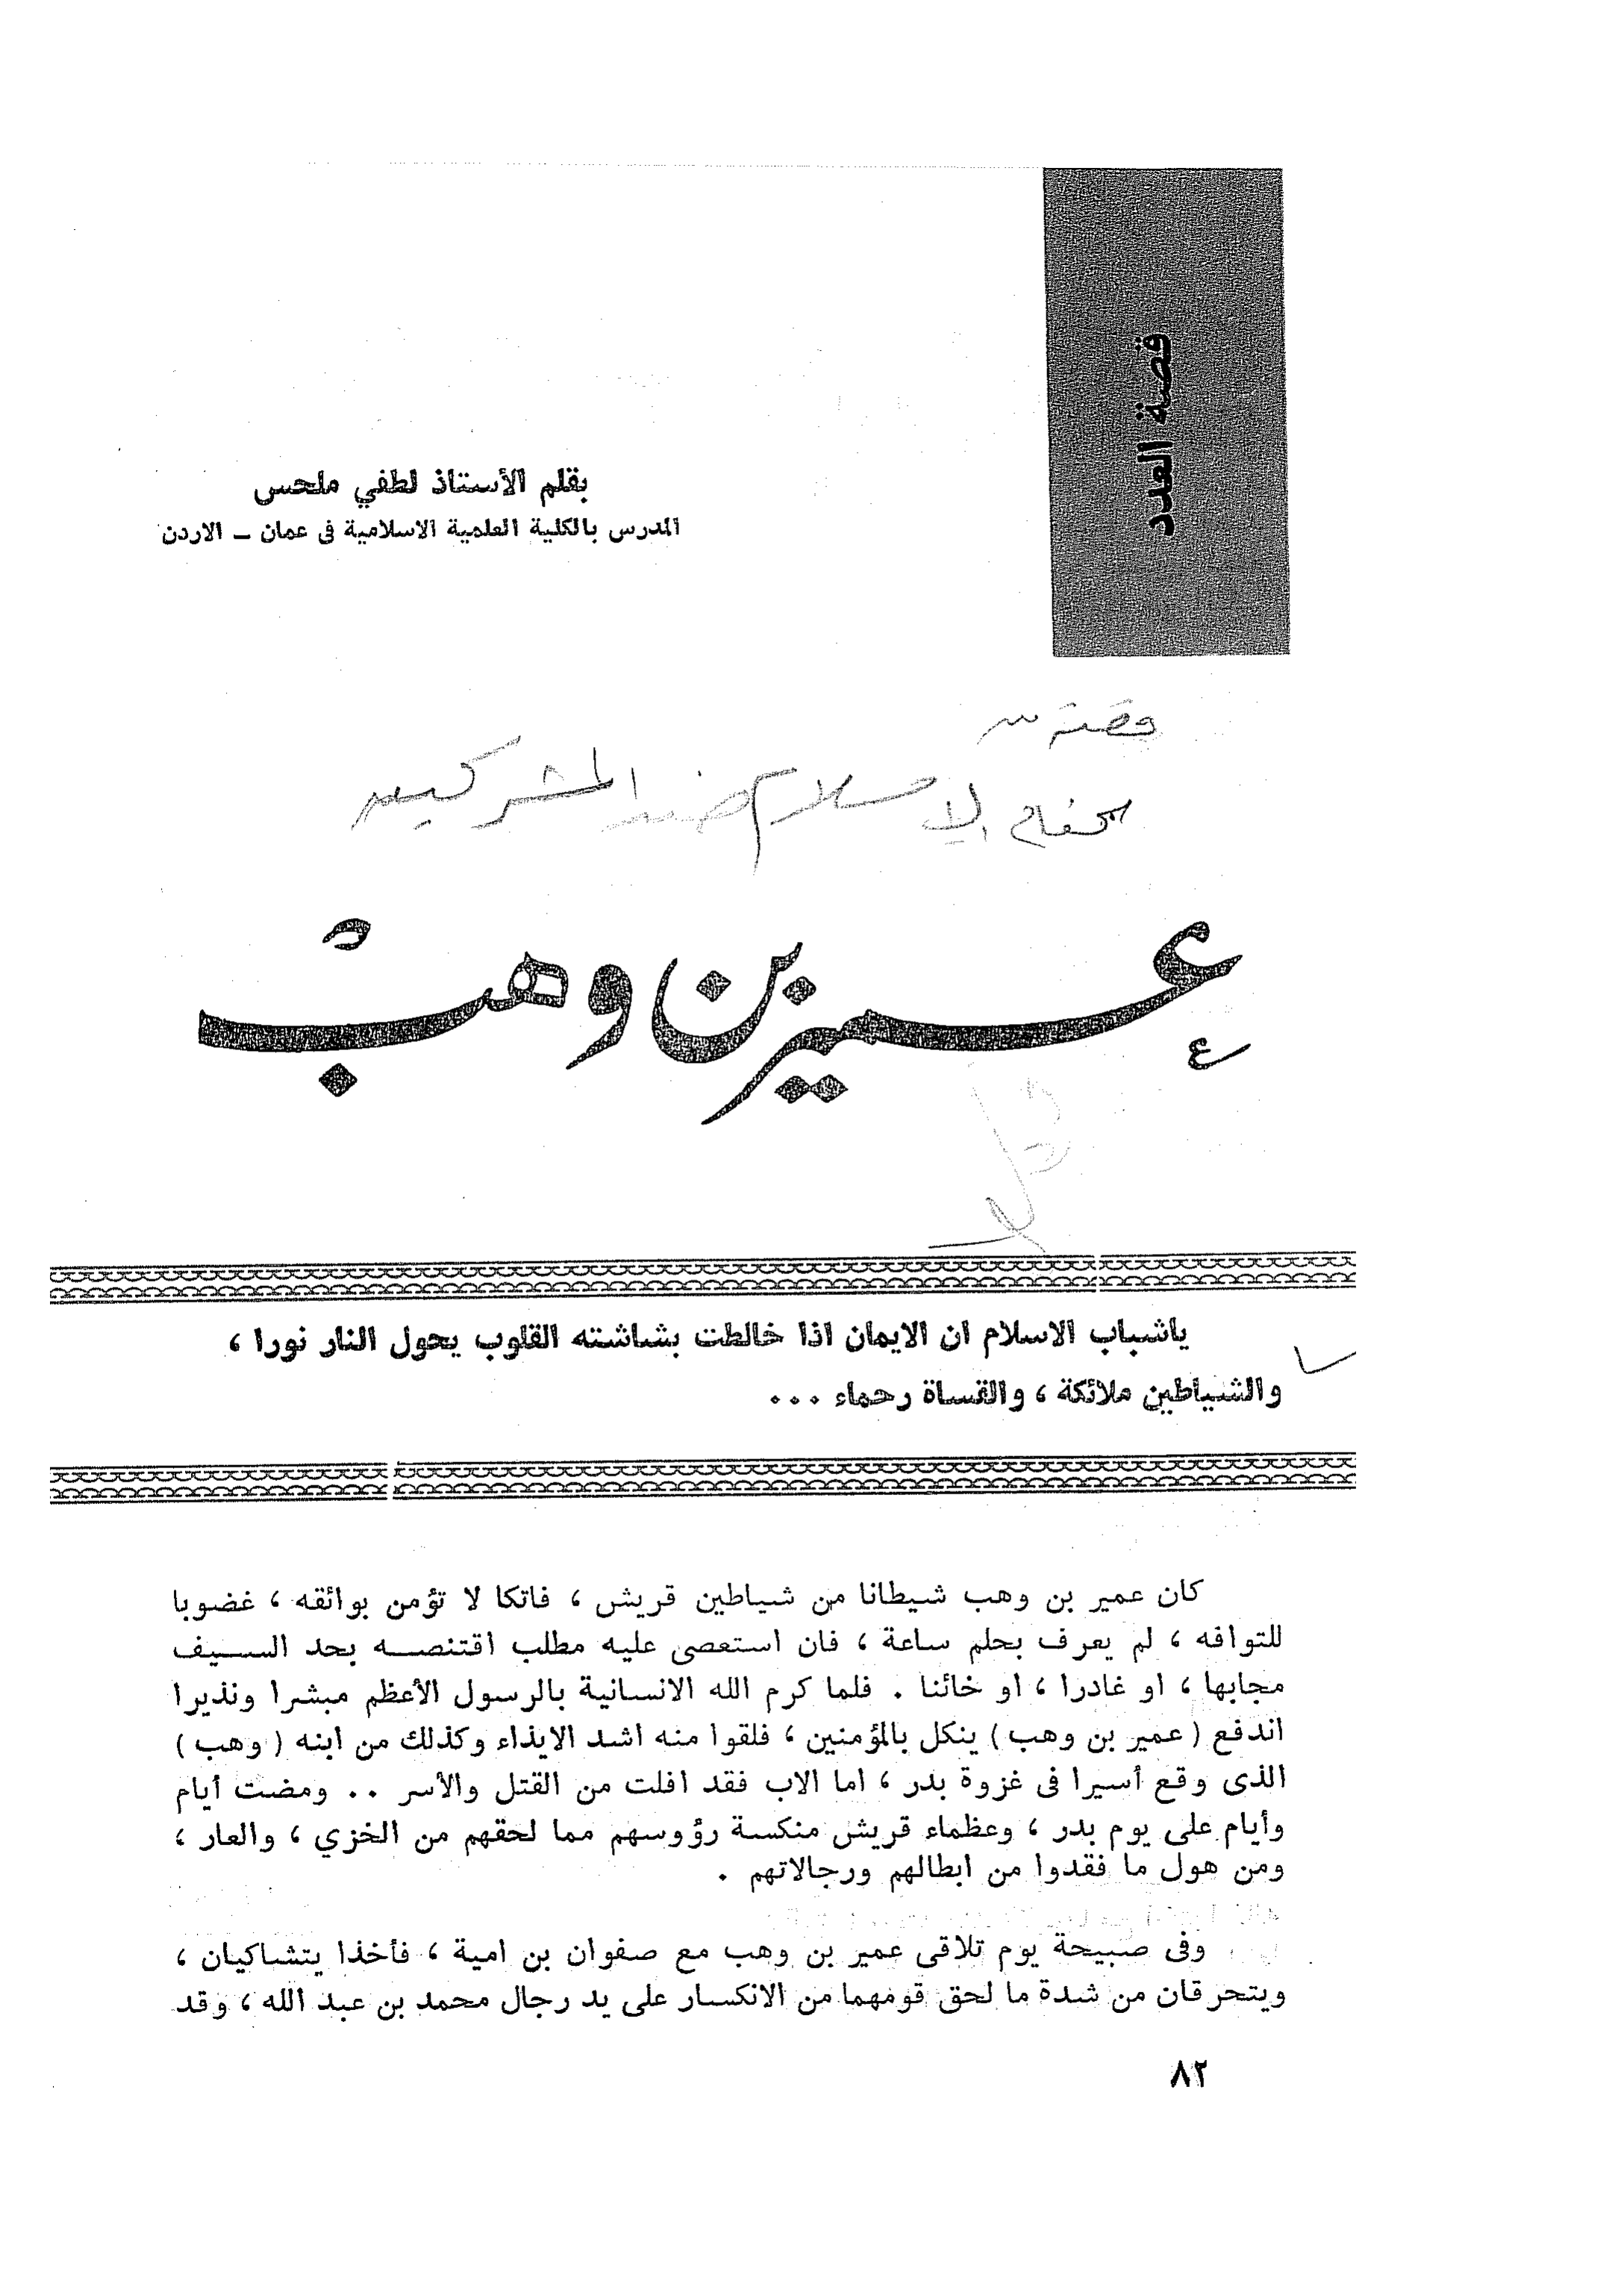 قصة العدد
بقلم الأستاذ لطفي ملحس
المدرس بالكلية العلمية الاسلامية فى عمان ــ الاردن
قصة
كفاح الاسلام ضد المشركين
عمير بن وهب
ياشباب الاسلام ان الايمان اذا خالطت بشاشته القلوب يحول النار نورا ،
والشياطين ملائكة ، والقساة رحماء ...
كان عمير بن وهب شيطانا من شياطين قريش ، فاتكا لا تؤمن بوائقه ، غضوبا
للتوافه ، لم يعرف بحلم ساعة ، فان استعصى عليه مطلب اقتنصه بحد السيف
مجابها ، او غادرا ، او خائنا . فلما كرم الله الانسانية بالرسول الأعظم مبشرا ونذيرا
اندفع ( عمير بن وهب ) ينكل بالمؤمنين ، فلقوا منه اشد الايذاء وكذلك من ابنه ( وهب )
الذى وقع أسيرا فى غزوة بدر ، اما الاب فقد افلت من القتل والأسر .. ومضت أيام
وأيام على يوم بدر ، وعظماء قريش منكسة رؤوسهم مما لحقهم من الخزي ، والعار ،
ومن هول ما فقدوا من ابطالهم ورجالاتهم .
وفى صبيحة يوم تلاقى عمير بن وهب مع صفوان بن امية ، فأخذا يتشاكيان ،
ويتحرقان من شدة ما لحق قومهما من الانكسار على يد رجال محمد بن عبد الله ، وقد
٨٢